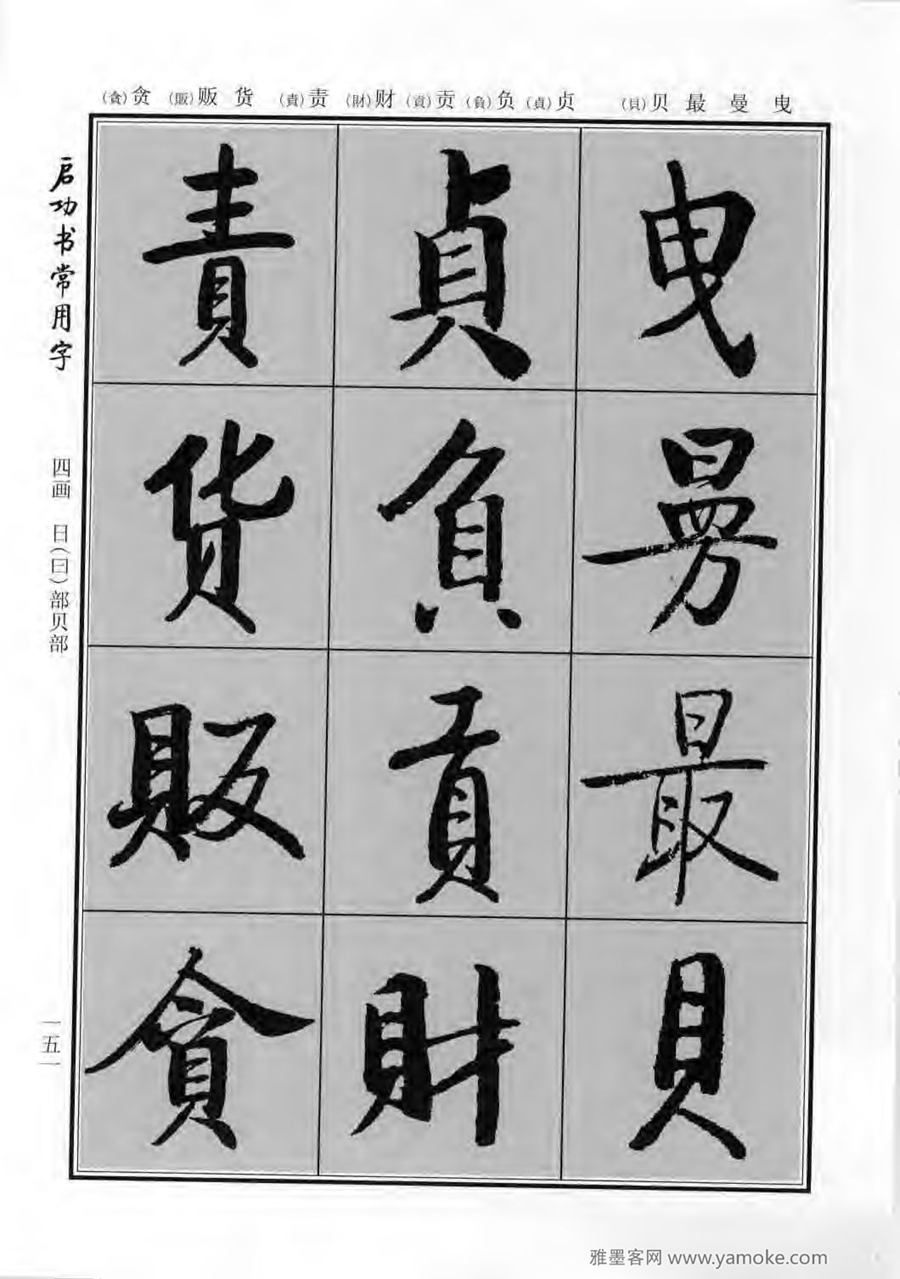 曳 曼 最 贝（貝） 贞（貞）负（負）贡（貢）财（財） 责（責） 货 贩（販） 贪（貪）
曳曼最貝
貞負貢財
責貨販貪
启功书常用字
四画 日（曰）部贝部
一五一
雅墨客网 www.yamoke.com